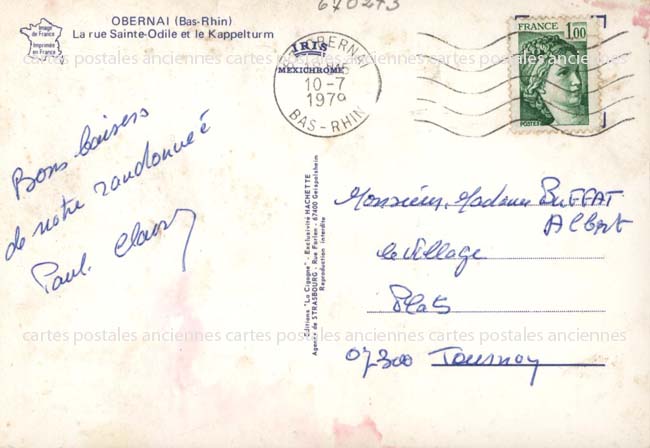 670273
Image
de France
Imprimée
en France
OBERNAI (Bas-Rhin)
La rue Sainte-Odile et le Kappelturm
IRIS
MEXICHROME
OBERNAI
10-7
1979
BAS-RHIN
FRANCE
1,00
POSTES
cartes postales anciennes cartes postales anciennes cartes postales anciennes
Bons baisers
de notre randonneé
Paul
Editions "La Cigogne" - Exclusivité HACHETTE
Agence de STRASBOURG - Rue Forlen - 67400 Geispolsheim
Reproduction interdite
Monsieur, Madame BUFFAT
Albert
le village
Plats
07300 Tournon
cartes postales anciennes cartes postales anciennes cartes postales anciennes